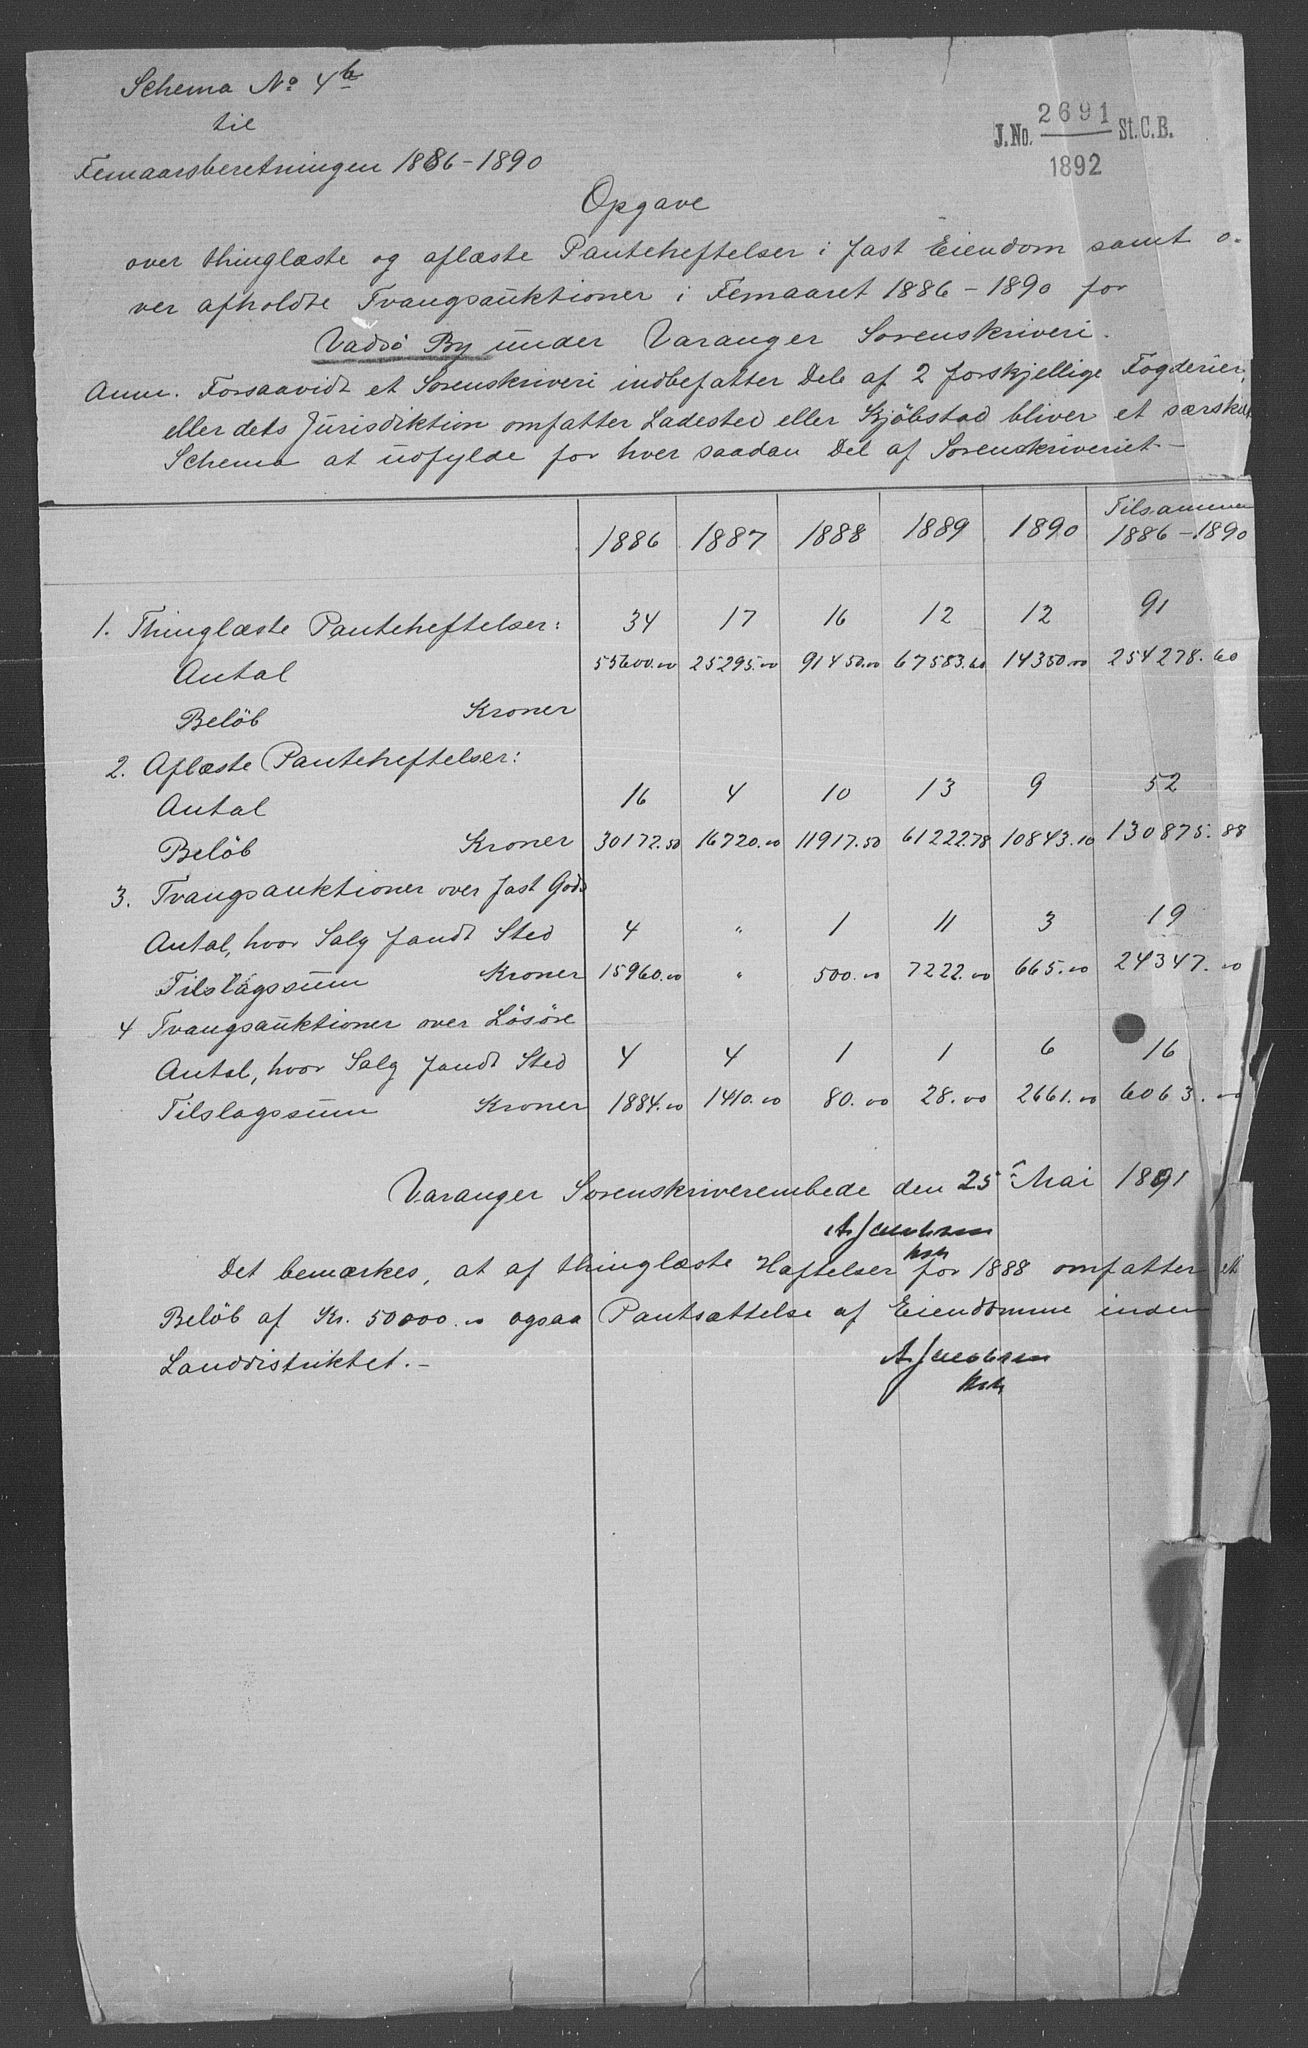 Schema No 4b
til
Femaarsberetningen 1886-1890
J.No. 2691 St.C.B.
1892
Opgave
over thinglæste og aflæste Panteheftelser i fast Eiendom samt o-
ver afholdte Tvangsauktioner i Femaaret 1886-1890 for
Vadsö By under Varanger Sorenskriveri.
Anm. Forsaavidt et Sorenskriveri indbefatter Dele af 2 forskjellige Fogderier,
eller dets Jurisdiktion omfatter Ladested eller Kjöbstad bliver et særskilt
Schema at udfylde for hver saadan Del af Sorenskriveriet-
1886 1887 1888 1889 1890 Tilsammen 1886-1890
1. Thinglæste Panteheftelser: 34 17 16 12 12 91
Antal 55600.00 25295.00 91450.00 67583.60 14350.00 254278.60
Belöb Kroner
2. Aflæste Panteheftelser:
Antal 16 4 10 13 9 52
Belöb Kroner 30172.50 16720.00 11917.50 61222.78 10843.10 130875.88
3. Tvangsauktioner over fast Gods
Antal, hvor Salg fandt Sted 4 " 1 11 3 19
Tilslagssum Kroner 15960.00 " 500.00 7222.00 665.00 24347.00
4 Tvangsauktioner over Lösöre
Antal, hvor Salg fandt Sted 4 4 1 1 6 16
Tilslagssum Kroner 1884.00 1410.00 80.00 28.00 2661.00 6063.00
Varanger Sorenskriverembede den 25 Mai 1891
A. Jacobsen
kst
Det bemærkes, at af thinglæste Hæftelser for 1888 omfatter et
Belöb af Kr. 50000.00 ogsaa Pantsættelse af Eiendomme inden
Landdistriktet.-
A. Jacobsen
kst